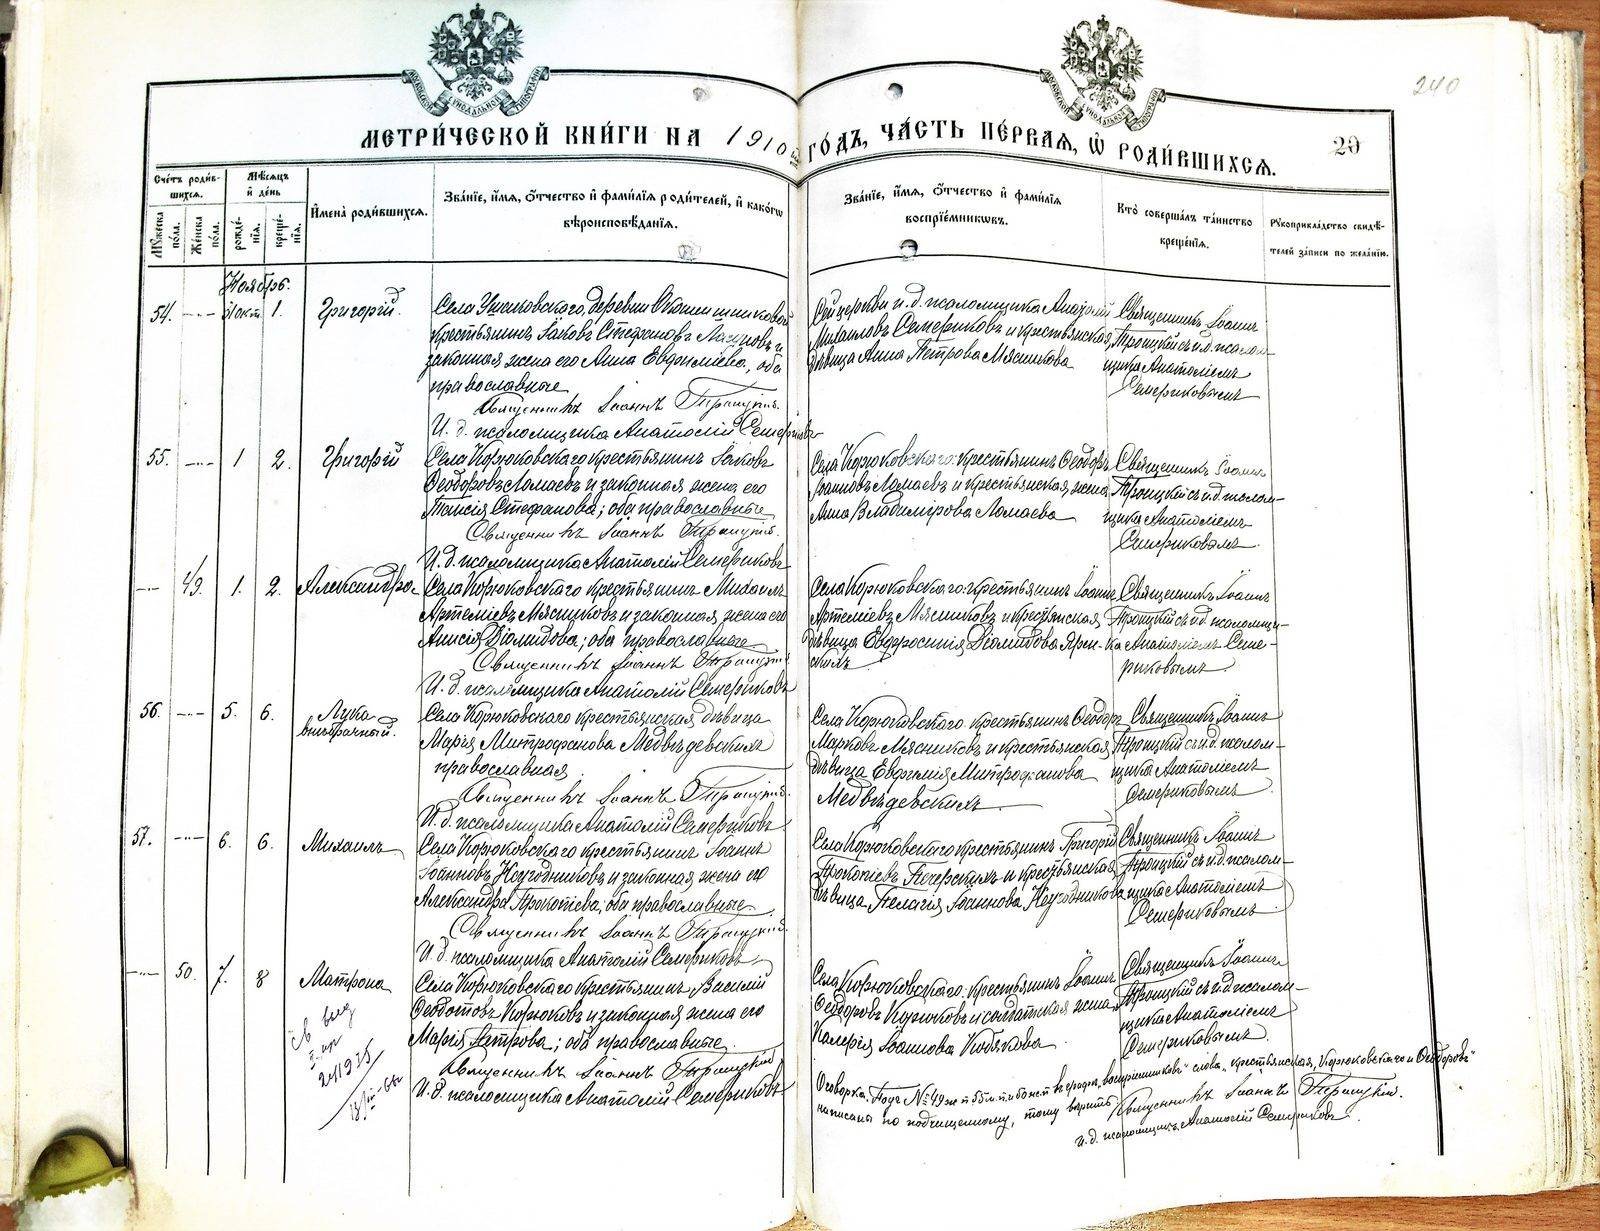 240
МЕТРИ́ЧЕСКОЙ КНИ́ГИ НА 1910 ГО́ДЪ, ЧА́СТЬ ПЕ́РВАЯ, Ѽ РОДИ́ВШИХСЯ.
29
Сче́тъ роди́вшихся.
Мѣ́сяцъ и҆ де́нь
Мꙋ́жеска по́ла.
Же́нска по́ла.
рожде́нїя.
креще́нїя.
И҆мена̀ роди́вшихся.
Зва́нїе, и҆́мя, ѻ҆́тчество и҆ фами́лїя роди́телей, и҆ како́гѡ
вѣроисповѣ́данїя.
Зва́нїе, и҆́мя, ѻ҆́тчество и҆ фами́лїя
воспрїе́мникѡвъ.
Кто̀ соверша́лъ та́инство
креще́нїя.
Рꙋкоприкла́дство свидѣ́-
телей за́писи по жела́нїю.
Ноябрь.
54. 31 окт. 1. Григорій.
Села Ушаковскаго, деревни
крестьянинъ Іаковъ Стефановъ и
законная жена его Анна Евфиміева, оба
православные
Священникъ Іоаннъ Троицкій.
И. д. псаломщика Анатолій Семериковъ
Сей церкви и. д. псаломщика Анатолій
Михаиловъ Семериковъ и крестьянская
дѣвица Анна Петрова Мясникова
Священникъ Іоаннъ
Троицкій съ и.д. псалом-
щика Анатоліемъ
Семериковымъ
55. 1 2. Григорій
Села Корюковскаго крестьянинъ Іаковъ
Ѳеодоровъ Ломаевъ и законная жена его
Таисія Стефанова; оба православные
Священникъ Іоаннъ Троицкій.
И. д. псаломщика Анатолій Семериковъ
Села Корюковскаго: крестьянинъ Ѳеодоръ
Іоанновъ Ломаевъ и крестьянская жена
Анна Владимірова Ломаева
Священникъ Іоаннъ
Троицкій съ и.д. псалом-
щика Анатоліемъ
Семериковымъ.
49. 1. 2. Александра
Села Корюковскаго крестьянинъ Михаилъ
Артеміевъ Мясниковъ и законная жена его
Анисія Діомидова; оба православные
Священникъ Іоаннъ Троицкій
И. д. псаломщика Анатолій Семериковъ
Села Корюковскаго: крестьянинъ Іоаннъ
Артеміевъ Мясниковъ и крестьянская
дѣвица Евфросинія Діомидова Ярки-
скихъ
Священникъ Іоаннъ
Троицкій съ и.д. псаломщи-
ка Анатоліемъ Семе-
риковымъ
56. 5. 6. Лука
внѣбрачный.
Села Корюковскаго крестьянская дѣвица
Марія Митрофанова Медвѣдевскихъ
православная
Священникъ Іоаннъ Троицкій.
И. д. псаломщика Анатолій Семериковъ
Села Корюковскаго крестьянинъ Ѳеодоръ
Марковъ Мясниковъ и крестьянская
дѣвица Евфимія Митрофанова
Медвѣдевскихъ
Священникъ Іоаннъ
Троицкій съ и.д. псалом-
щика Анатоліемъ
Семериковымъ
57. 6. 6. Михаилъ
Села Корюковскаго крестьянинъ Іоаннъ
Іоанновъ Неугодниковъ и законная жена его
Александра Прокопіева; оба православные
Священникъ Іоаннъ Троицкій.
И. д. псаломщика Анатолій Семериковъ
Села Корюковскаго крестьянинъ Григорій
Прокопіевъ Печерскихъ и крестьянская
дѣвица Пелагія Іоаннова Неугодникова
Священникъ Іоаннъ
Троицкій съ и.д. псалом-
щика Анатоліемъ
Семериковымъ
50. 7. 8 Матрона
Села Корюковскаго крестьянинъ Василій
Ѳеодотовъ Корюковъ и законная жена его
Марія Петрова; оба православные.
Священникъ Іоаннъ Троицкій
И. д. псаломщика Анатолій Семериковъ
Села Корюковскаго: крестьянинъ Іоаннъ
Ѳеодоровъ Корюковъ и солдатская жена
Валерія Іоаннова Кобякова
Священникъ Іоаннъ
Троицкій съ и.д. псалом-
щика Анатоліемъ
Семериковымъ.
Св выд
Оговорка. Подъ № 49 ж.п. 55 м.п. и 50 ж.п. въ графѣ „воспріемниковъ" слова „крестьянская, Корюковскаго и Ѳеодоровъ"
написаны по подчищенному, тому вѣрить Священникъ Іоаннъ Троицкій.
и. д. псаломщика Анатолій Семериковъ.